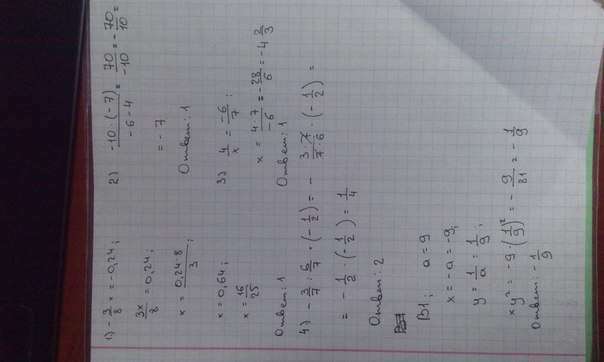 1) -3/8 x = -0,24;
3x/8 = 0,24;
x = 0,24·8/3;
x = 0,64;
x = 16/25
Ответ: 1
2) -10·(-7)/-6-4 = 70/-10 = -70/10 =
= -7
Ответ: 1
3) 4/x = -6/7;
x = 4·7/-6 = -28/6 = -4 2/3
Ответ: 1
4) -3/7 : 6/7 · (-1/2) = -3·7/7·6 · (-1/2) =
= -1/2 · (-1/2) = 1/4
Ответ: 2
B1; a = 9
x = -a = -9;
y = 1/a = 1/9;
xy² = -9·(1/9)² = -9/81 = -1/9
Ответ: -1/9